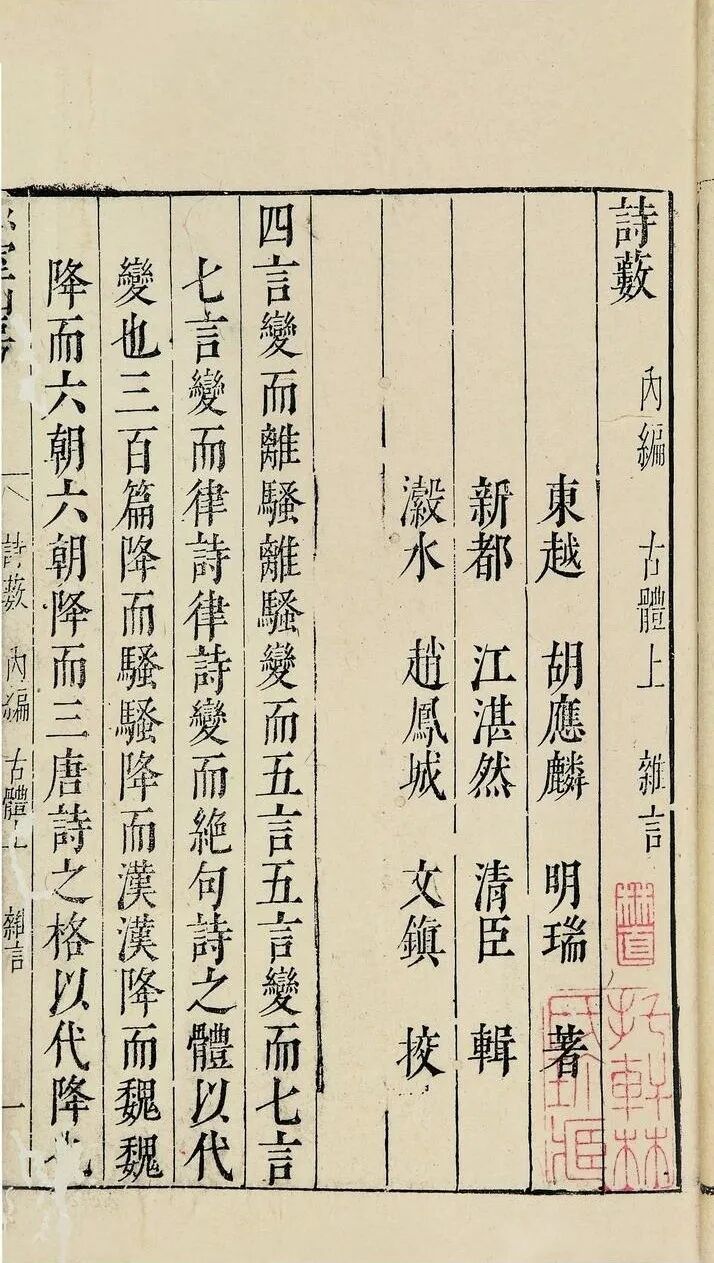 詩藪 內編 古體上 雜言
東越 胡應麟 明瑞 著
新都 江湛然 清臣 輯
瀫水 趙鳳城 文鎮 挍
四言變而離騷離騷變而五言五言變而七言
七言變而律詩律詩變而絶句詩之體以代
變也三百篇降而騷騷降而漢漢降而魏魏
降而六朝六朝降而三唐詩之格以代降也
詩藪 內編 古體上 雜言 一